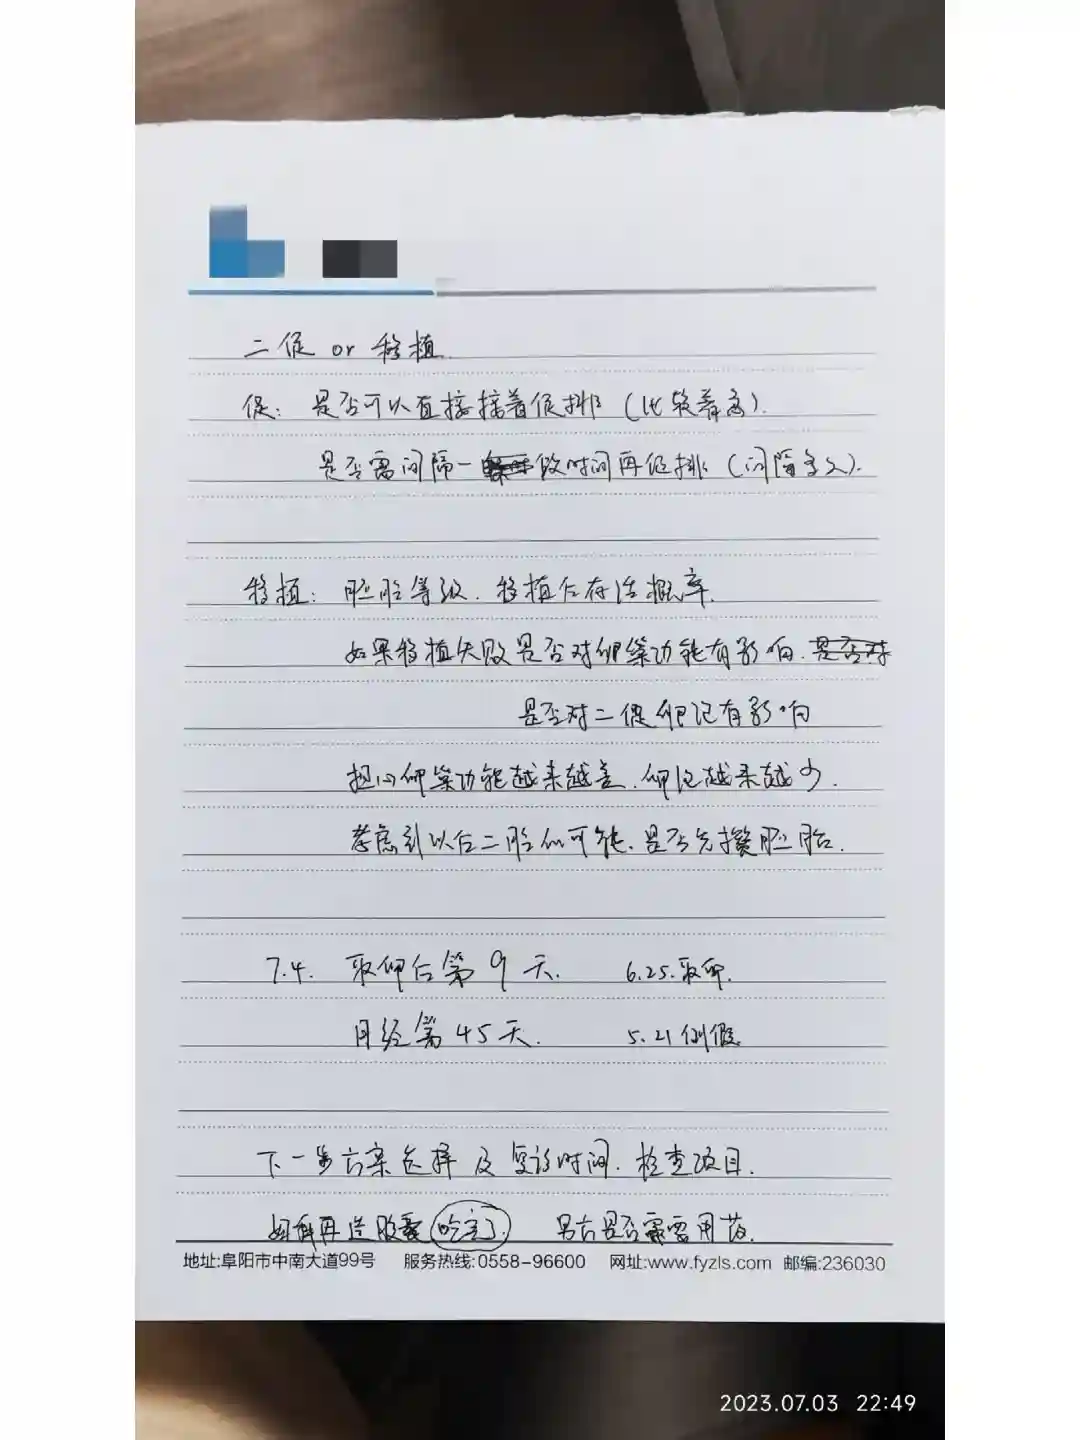 二促 or 移植.
促: 是否可以直接接着促排 (比较着急).
是否需间隔一段时间再促排 (间隔多久).
移植: 胚胎等级. 移植后存活概率.
如果移植失败是否对卵巢功能有影响. 是否对
是否对二促卵泡有影响
担心卵巢功能越来越差. 卵泡越来越少.
考虑到以后二胎的可能. 是否先攒胚胎.
7.4. 取卵后第9天. 6.25.取卵.
月经第45天. 5.21例假
下一步方案选择及复诊时间. 检查项目.
再造胶囊 吃完了. 男方是否需要用药.
地址:阜阳市中南大道99号 服务热线:0558-96600 网址:www.fyzls.com 邮编:236030
2023.07.03 22:49